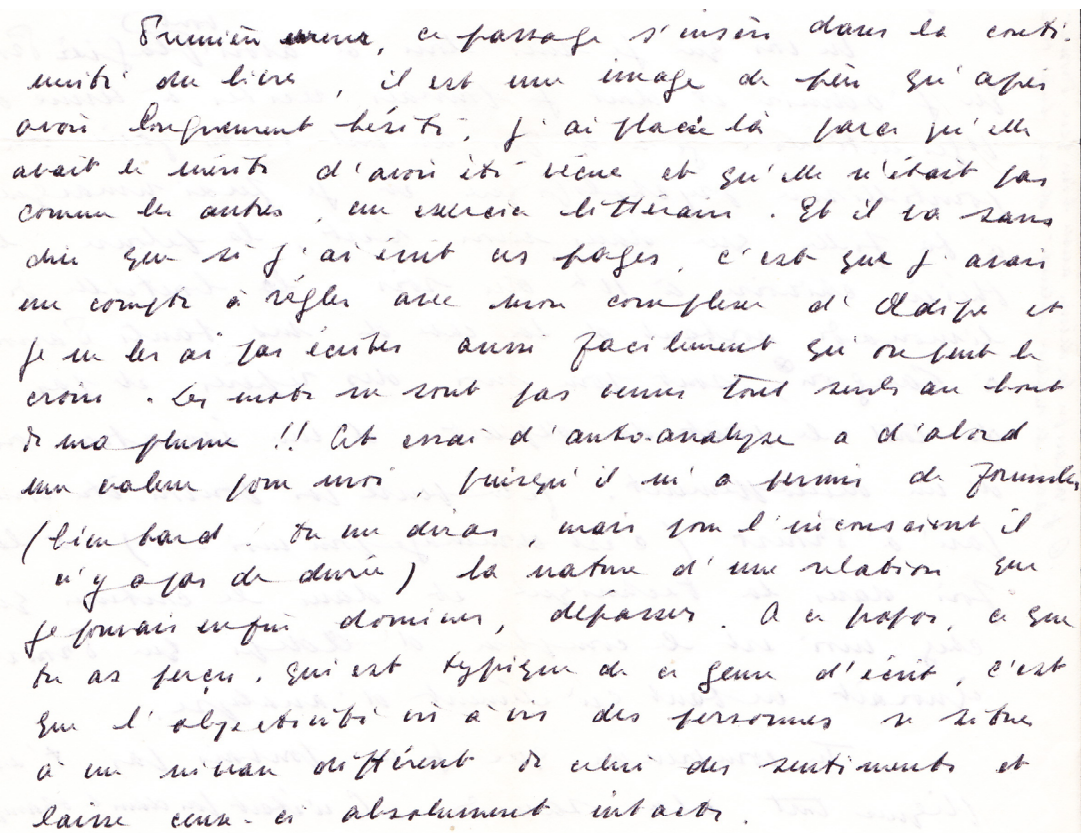 Première erreur, ce passage s'insère dans la conti-
nuité du livre, il est une image de père qu'après
avoir longuement hésité, j'ai placée là parce qu'elle
avait le mérite d'avoir été vécue et qu'elle n'était pas
comme les autres, un exercice littéraire. Et il va sans
dire que si j'ai écrit ces pages, c'est que j'avais
un compte à régler avec mon complexe d'Œdipe et
je ne les ai pas écrites aussi facilement qu'on peut le
croire. Les mots ne sont pas venus tout seuls au bout
de ma plume !! Cet essai d'auto-analyse a d'abord
une valeur pour moi, puisqu'il m'a permis de formuler
(bien tard tu me diras, mais pour l'inconscient il
n'y a pas de durée) la nature d'une relation que
je pouvais enfin dominer, dépasser. A ce propos, ce que
tu as perçu, qui est typique de ce genre d'écrit, c'est
que l'objectivité vis à vis des personnes se situe
à un niveau différent de celui des sentiments et
laisse ceux-ci absolument intacts.